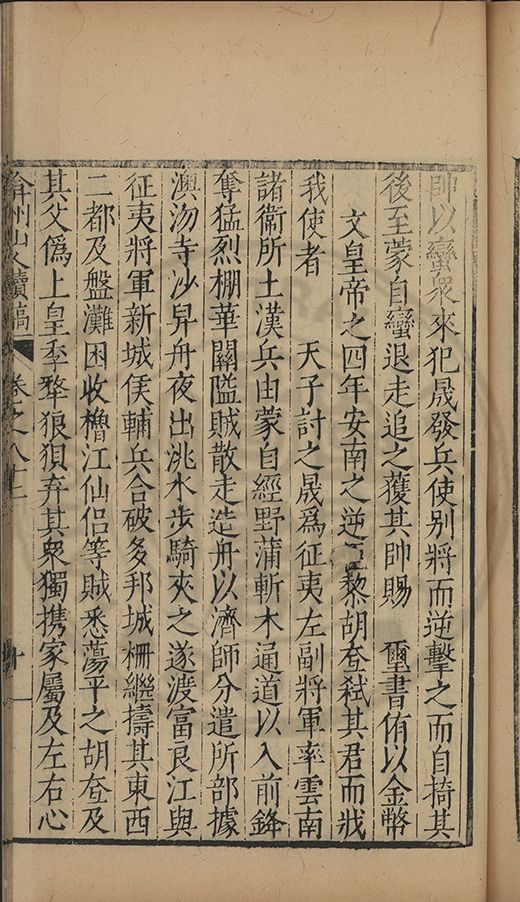 帥以蠻衆來犯晟發兵使别將而逆擊之而自掎其
後至蒙自蠻退走追之獲其帥賜　璽書侑以金幣
文皇帝之四年安南之逆臣黎胡㚞弑其君而戕
我使者　天子討之晟爲征夷左副將軍率雲南
諸衛所土漢兵由蒙自經野蒲斬木通道以入前鋒
奪猛烈棚華關隘賊散走造舟以濟師分遣所部據
㴔沕寺沙昇舟夜出洮水步騎夾之遂渡富良江與
征夷將軍新城侯輔兵合破多邦城柵繼擣其東西
二都及盤灘困收櫓江仙侣等賊悉蕩平之胡㚞及
其父僞上皇季犛狼狽弃其衆獨携家屬及左右心
弇州山人續稿　卷之八十二　十一